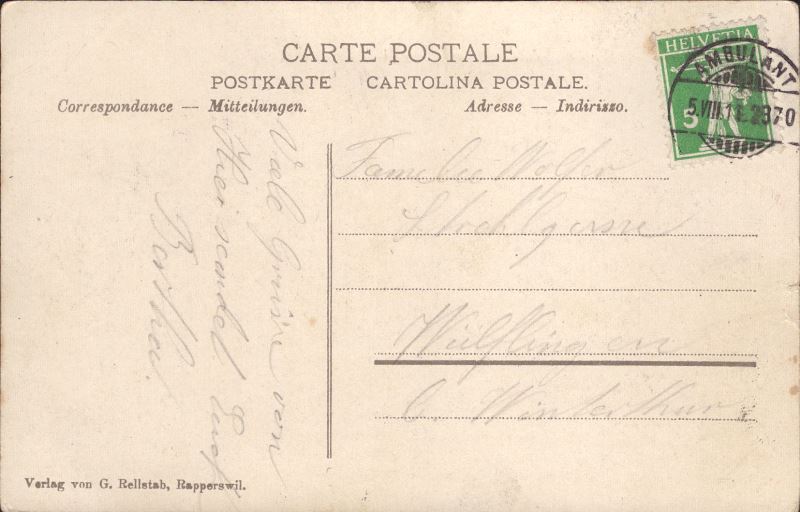 CARTE POSTALE
POSTKARTE CARTOLINA POSTALE.
Correspondance — Mitteilungen.
Adresse — Indirizzo.
HELVETIA
5
AMBULANT
5.VIII.1 2370
Viele Grüsse von
Hier sendet Euch
Bertha.
Familie
Wülflingen
b. Winterthur
Verlag von G. Rellstab, Rapperswil.